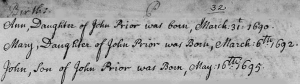 Births. 32
Ann, Daughter of John Prior was born, March 31st 1690.
Mary, Daughter of John Prior was Born, March 6th 1692.
John, Son of John Prior was Born, May 16th 1695.